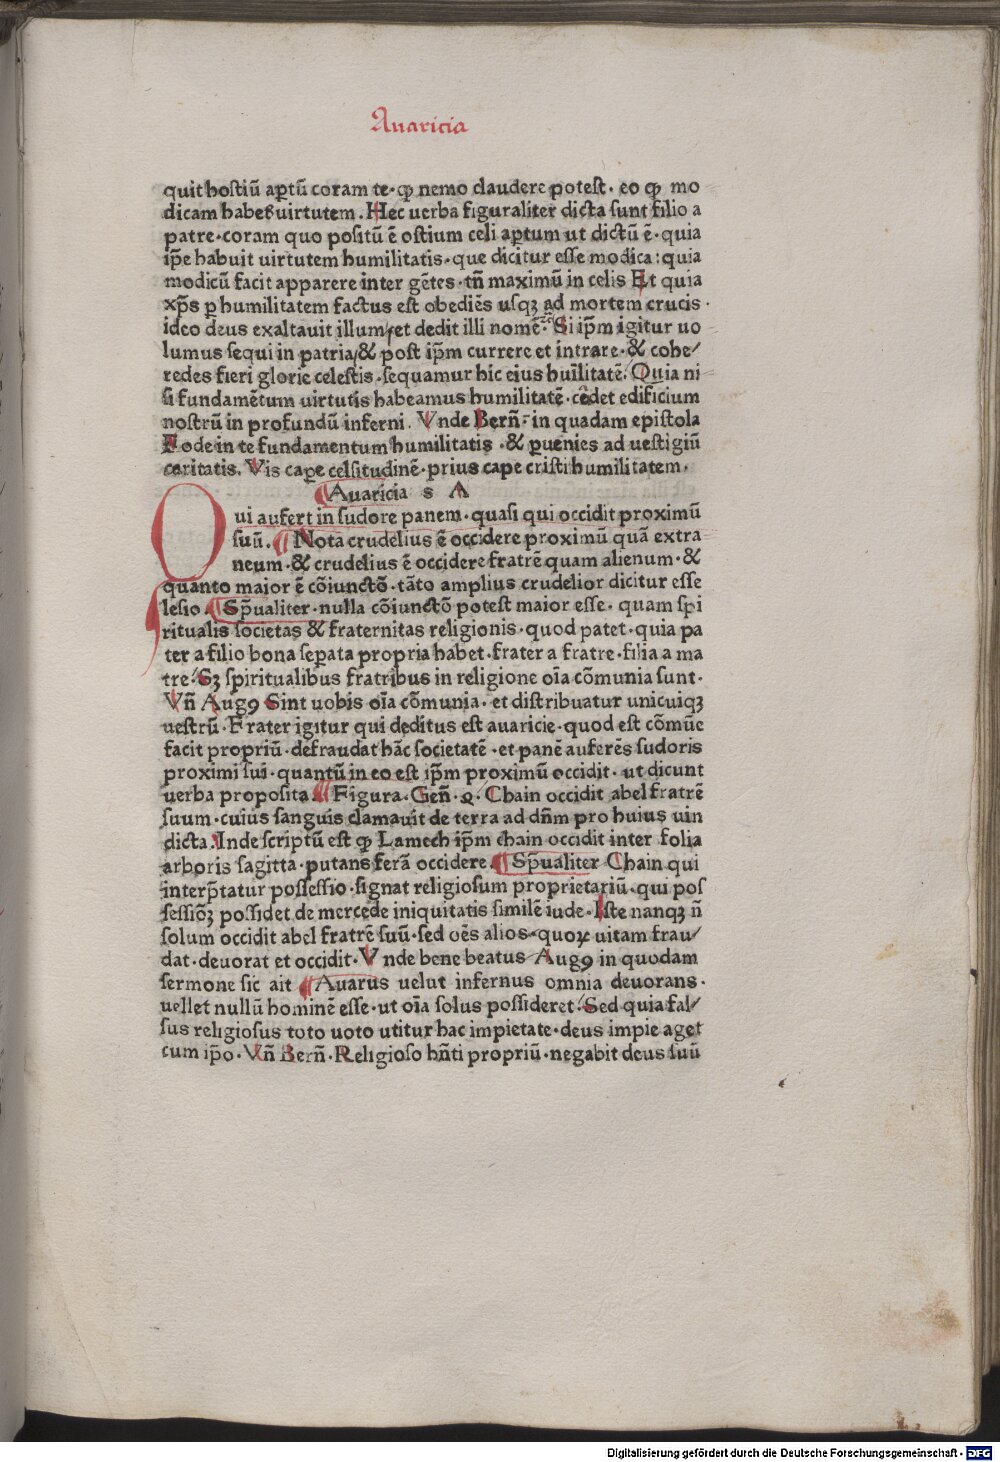 Auaricia
quit hostiū aꝑtū coram te · ꝙ nemo claudere potest · eo ꝙ mo
dicam habes uirtutem . Hec uerba figuraliter dicta sunt filio a
patre · coram quo positū ē ostium celi aꝑtum ut dictū ē · quia
ip̄e habuit uirtutem humilitatis · que dicitur esse modica : quia
modicū facit apparere inter gētes · tn̄ maximū in celis Et quia
xp̄s ꝑ humilitatem factus est obediēs usqꝫ ad mortem crucis ·
ideo deus exaltauit illum / et dedit illi nomē · Si ip̄m igitur uo
lumus sequi in patria / & post ip̄m currere et intrare · & cohe/
redes fieri glorie celestis · sequamur hic eius huīlitatē / Quia ni
si fundamētum uirtutis habeamus humilitatē · cedet edificium
nostrū in profundū inferni . Vnde Bern̄ · in quadam epistola
Fode in te fundamentum humilitatis · & ꝑuenies ad uestigiū
caritatis . Vis caꝑe celsitudinē · prius cape cristi humilitatem ·
Auaricia s A
Qui aufert in sudore panem · quasi qui occidit proximū
suū . Nota crudelius ē occidere proximū quā extra
neum · & crudelius ē occidere fratrē quam alienum · &
quanto maior ē cōiunctō · tāto amplius crudelior dicitur esse
lesio . Sp̄ualiter · nulla cōiunctō potest maior esse · quam spi
ritualis societas & fraternitas religionis · quod patet · quia pa
ter a filio bona seꝑata propria habet · frater a fratre · filia a ma
tre / Sꝫ spiritualibus fratribus in religione oīa cōmunia sunt ·
Vn̄ Augꝯ Sint uobis oīa cōmunia · et distribuatur unicuiqꝫ
uestrū · Frater igitur qui deditus est auaricie · quod est cōmūe
facit propriū · defraudat hāc societatē · et panē auferēs sudoris
proximi sui · quantū in eo est ip̄m proximū occidit · ut dicunt
uerba proposita . Figura · Gen̄ · 4 · Chain occidit abel fratrē
suum · cuius sanguis clamauit de terra ad dn̄m pro huius uin
dicta . Inde scriptū est ꝙ Lamech ip̄m chain occidit inter folia
arboris sagitta · putans ferā occidere . Sp̄ualiter Chain qui
interp̄tatur possessio · signat religiosum proprietariū · qui pos
sessiōꝫ possidet de mercede iniquitatis similē iude · Iste nanqꝫ n̄
solum occidit abel fratrē suū · sed oēs alios · quoꝝ uitam frau/
dat · deuorat et occidit · Vnde bene beatus Augꝯ in quodam
sermone sic ait Auarus uelut infernus omnia deuorans ·
uellet nullū hominē esse · ut oīa solus possideret / Sed quia fal/
sus religiosus toto uoto utitur hac impietate · deus impie aget
cum ip̄o · Vn̄ Bern̄ · Religioso hn̄ti propriū · negabit deus suū
Digitalisierung gefördert durch die Deutsche Forschungsgemeinschaft - DFG